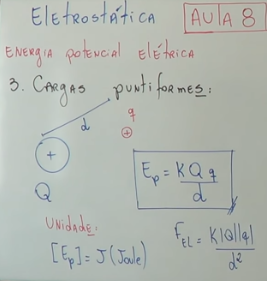 Eletrostática
AULA 8
ENERGIA POTENCIAL ELÉTRICA
3. CARGAS puntiformes:
d
q
+
+
Q
Ep = KQq/d
UNIDADE:
[Ep] = J (Joule)
FEL = K|Q||q|/d²